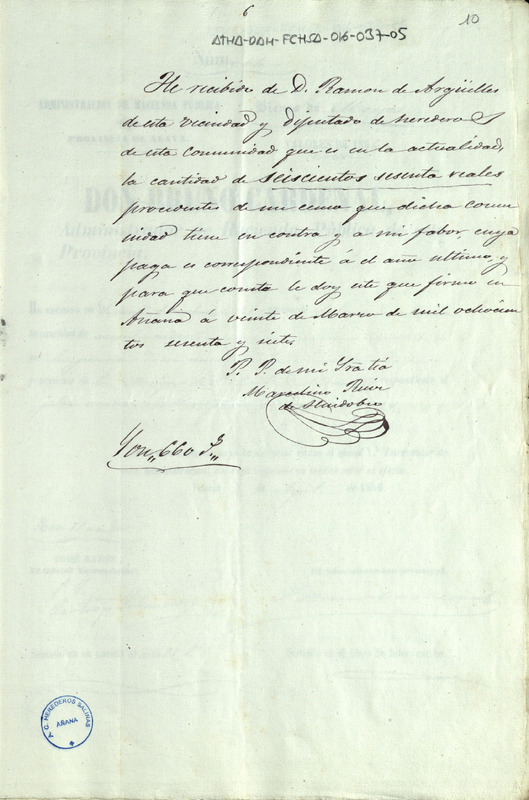 6
10
ATHA-DAH-FCHSA-016-037-05
He recibido de D. Ramon de Argüelles
de esta vecindad y Diputado de herederos
de esta Comunidad que es en la actualidad,
la cantidad de seiscientos sesenta reales
procedentes de un censo que dicha comu
nidad tiene en contra y a mi fabor, cuya
paga es correspondiente á el año ultimo, y
para que conste le doy este que firmo en
Añana á veinte de Marzo de mil ochocien
tos sesenta y siete
P. P. de mi Sra tia
Marcelino Ruiz
de Huidobro
Son 660 rs
C. G. HEREDEROS SALINAS
AÑANA